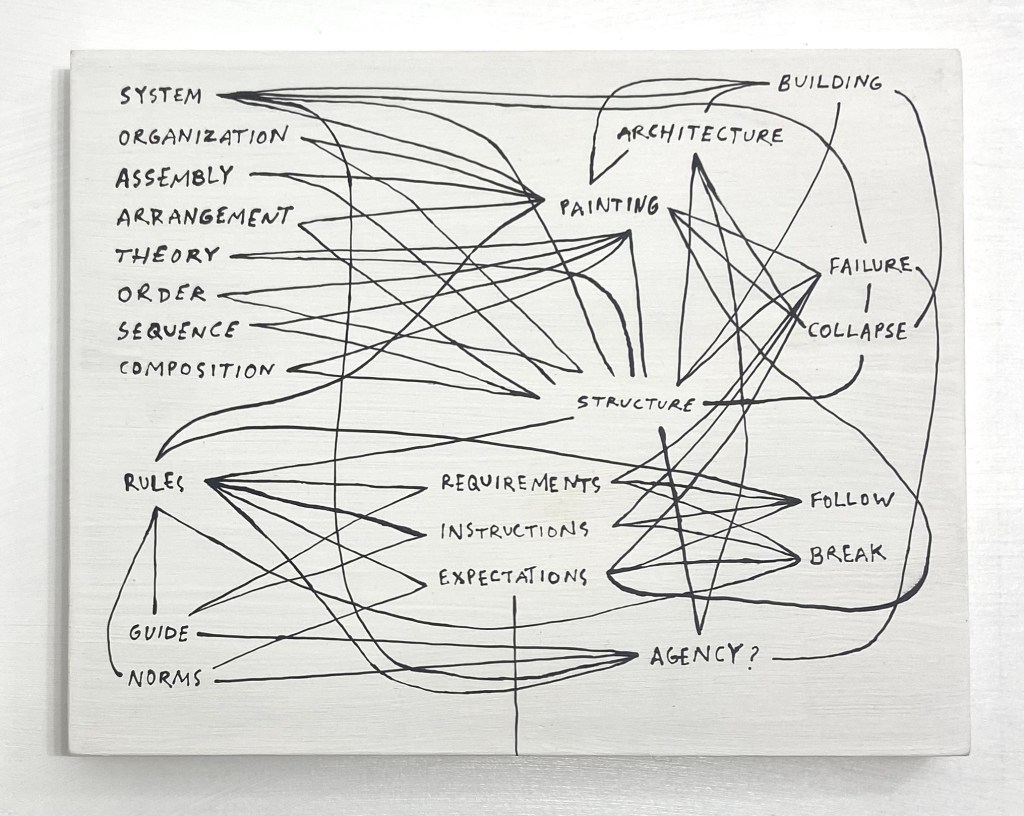 SYSTEM
ORGANIZATION
ASSEMBLY
ARRANGEMENT
THEORY
ORDER
SEQUENCE
COMPOSITION
BUILDING
ARCHITECTURE
PAINTING
FAILURE
COLLAPSE
STRUCTURE
RULES
REQUIREMENTS
INSTRUCTIONS
EXPECTATIONS
FOLLOW
BREAK
GUIDE
NORMS
AGENCY?